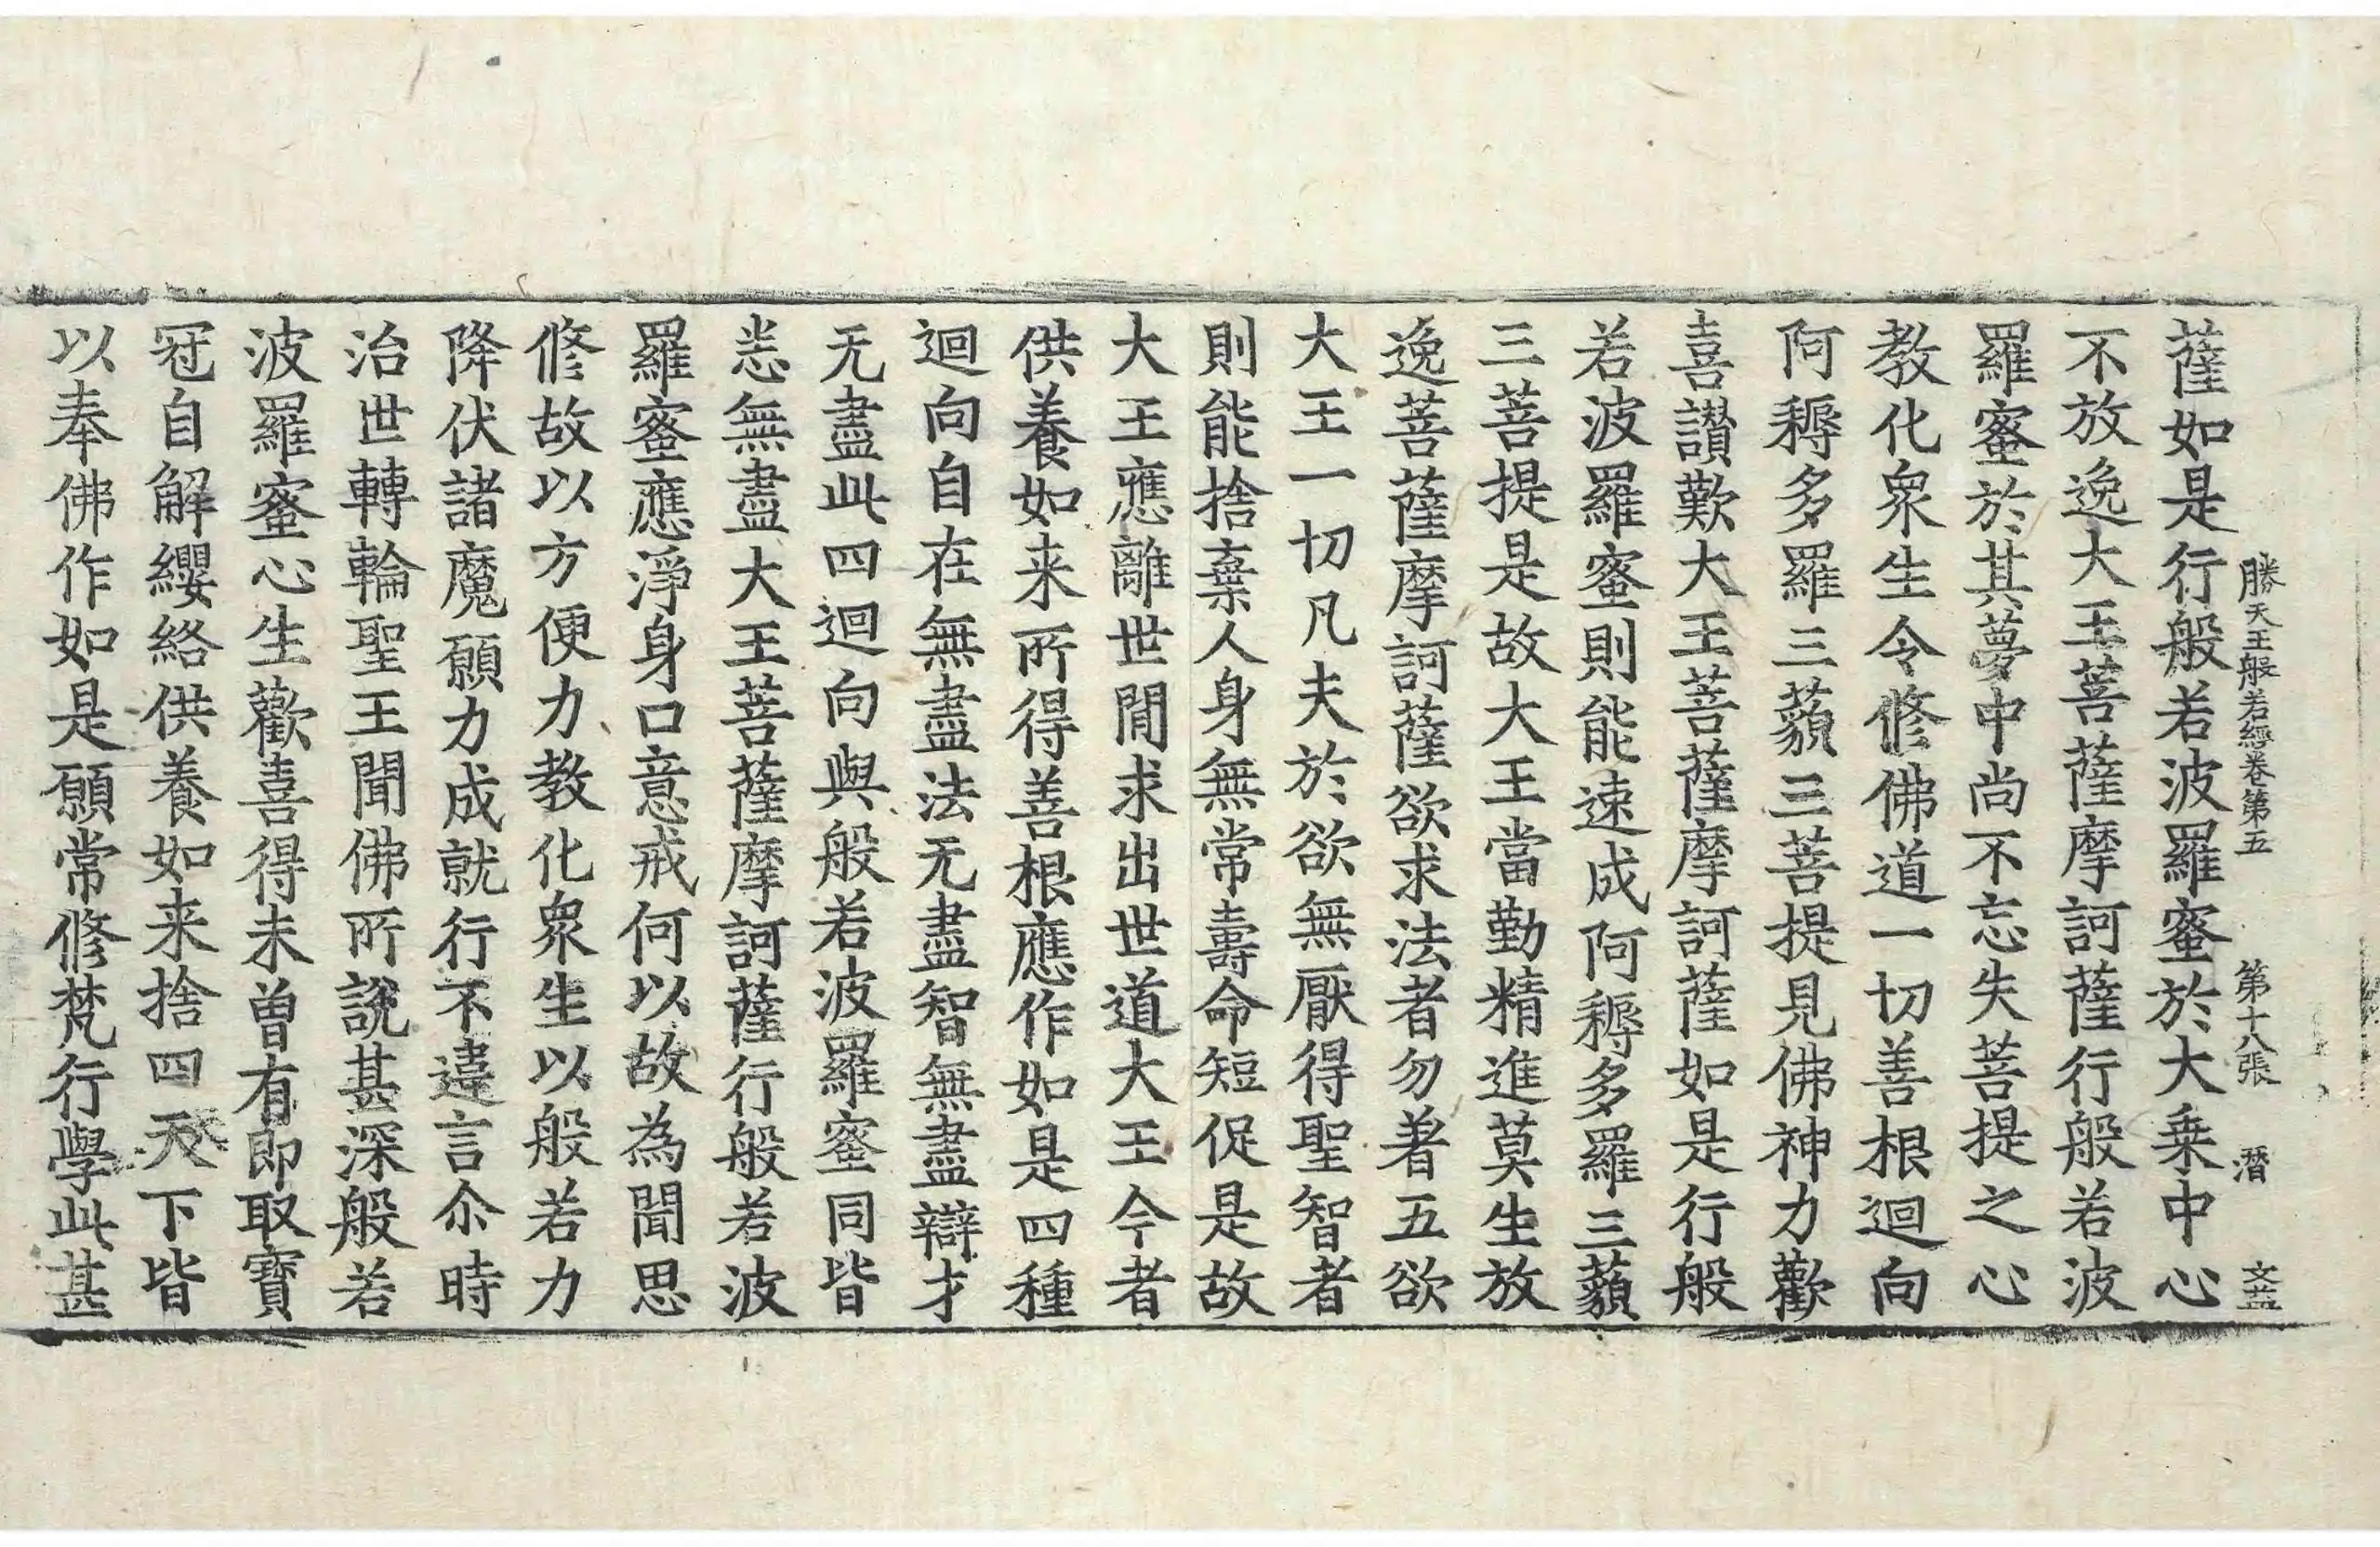 勝天王般若經卷第五　第十八張　潛　文益
薩如是行般若波羅蜜於大乘中心
不放逸大王菩薩摩訶薩行般若波
羅蜜於其夢中尚不忘失菩提之心
教化衆生令修佛道一切善根迴向
阿耨多羅三藐三菩提見佛神力歡
喜讃歎大王菩薩摩訶薩如是行般
若波羅蜜則能速成阿耨多羅三藐
三菩提是故大王當勤精進莫生放
逸菩薩摩訶薩欲求法者勿著五欲
大王一切凡夫於欲無厭得聖智者
則能捨棄人身無常壽命短促是故
大王應離世閒求出世道大王今者
供養如来所得善根應作如是四種
迴向自在無盡法无盡智無盡辯才
无盡此四迴向與般若波羅蜜同皆
恙無盡大王菩薩摩訶薩行般若波
羅蜜應淨身口意戒何以故為聞思
修故以方便力教化衆生以般若力
降伏諸魔願力成就行不違言尒時
治世轉輪聖王聞佛所說甚深般若
波羅蜜心生歡喜得未曾有即取寶
冠自解纓絡供養如来捨四天下皆
以奉佛作如是願常修梵行學此甚